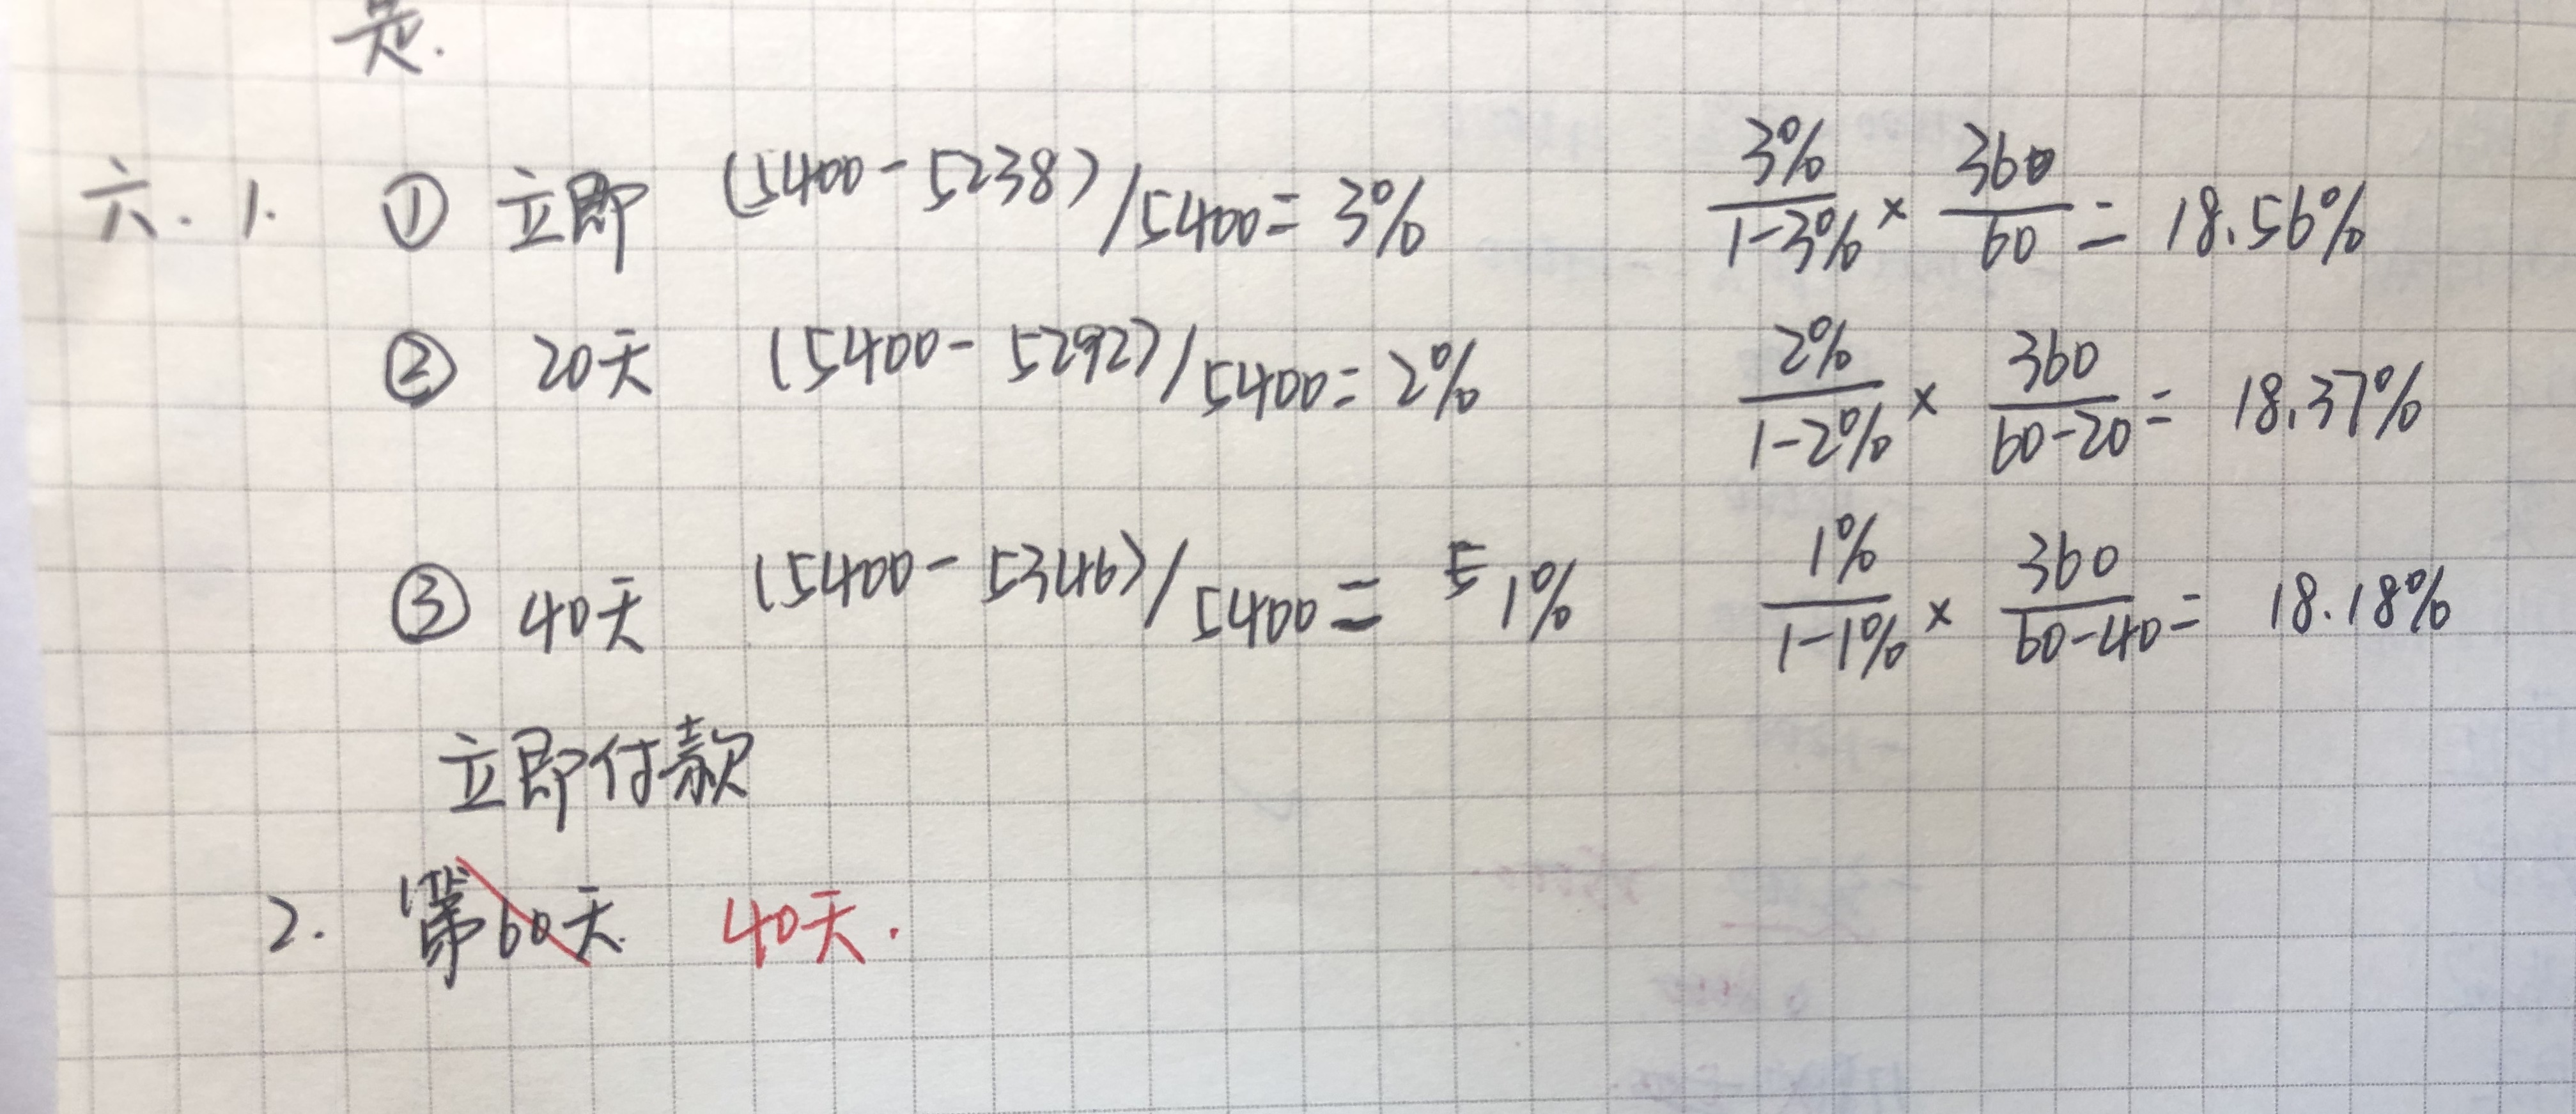 是.
六. 1. ① 立即 (5400-5238)/5400=3% 3%/1-3% × 360/60 = 18.56%
② 20天 (5400-5292)/5400=2% 2%/1-2% × 360/60-20 = 18.37%
③ 40天 (5400-5346)/5400= 5 1% 1%/1-1% × 360/60-40 = 18.18%
立即付款
2. 第60天. 40天.